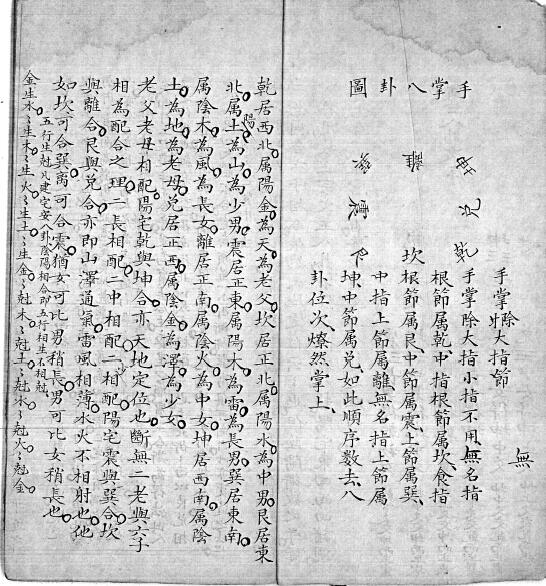 手掌八卦圖
坤 兌 乾
離 坎
巽 震 艮
手掌除大指節 無
手掌除大指小指不用、無名指
根節属乾中指根節属坎、食指
根節属艮、中節属震、上節属巽、
中指上節属離無名指上節属
坤、中節属兌、如此順序数去、八
卦位次、燎然掌上、
乾居西北属陽金為天為老父坎居正北属陽水為中男艮居東
北属陽土為山為少男震居正東属陽木為雷為長男巽居東南
属陰木為風為長女離居正南属陰火為中女坤居西南属陰
土為地為老母兌居正西属陰金為澤為少女
老父老母相配陽宅乾與坤合亦天地定位也断無二老與六子
相為配合之理二長相配二中相配二少相配陽宅震與巽合坎
與離合艮與兌合亦即山澤通氣雷風相薄水火不相射也他
如坎可合巽离可合震猶女可比男稍長男可比女稍長也
五行生尅凡建宅安八卦陰陽相合即五行相生不相尅
金生水水生木木生火火生土土生金金尅木木尅土土尅水水尅火火尅金